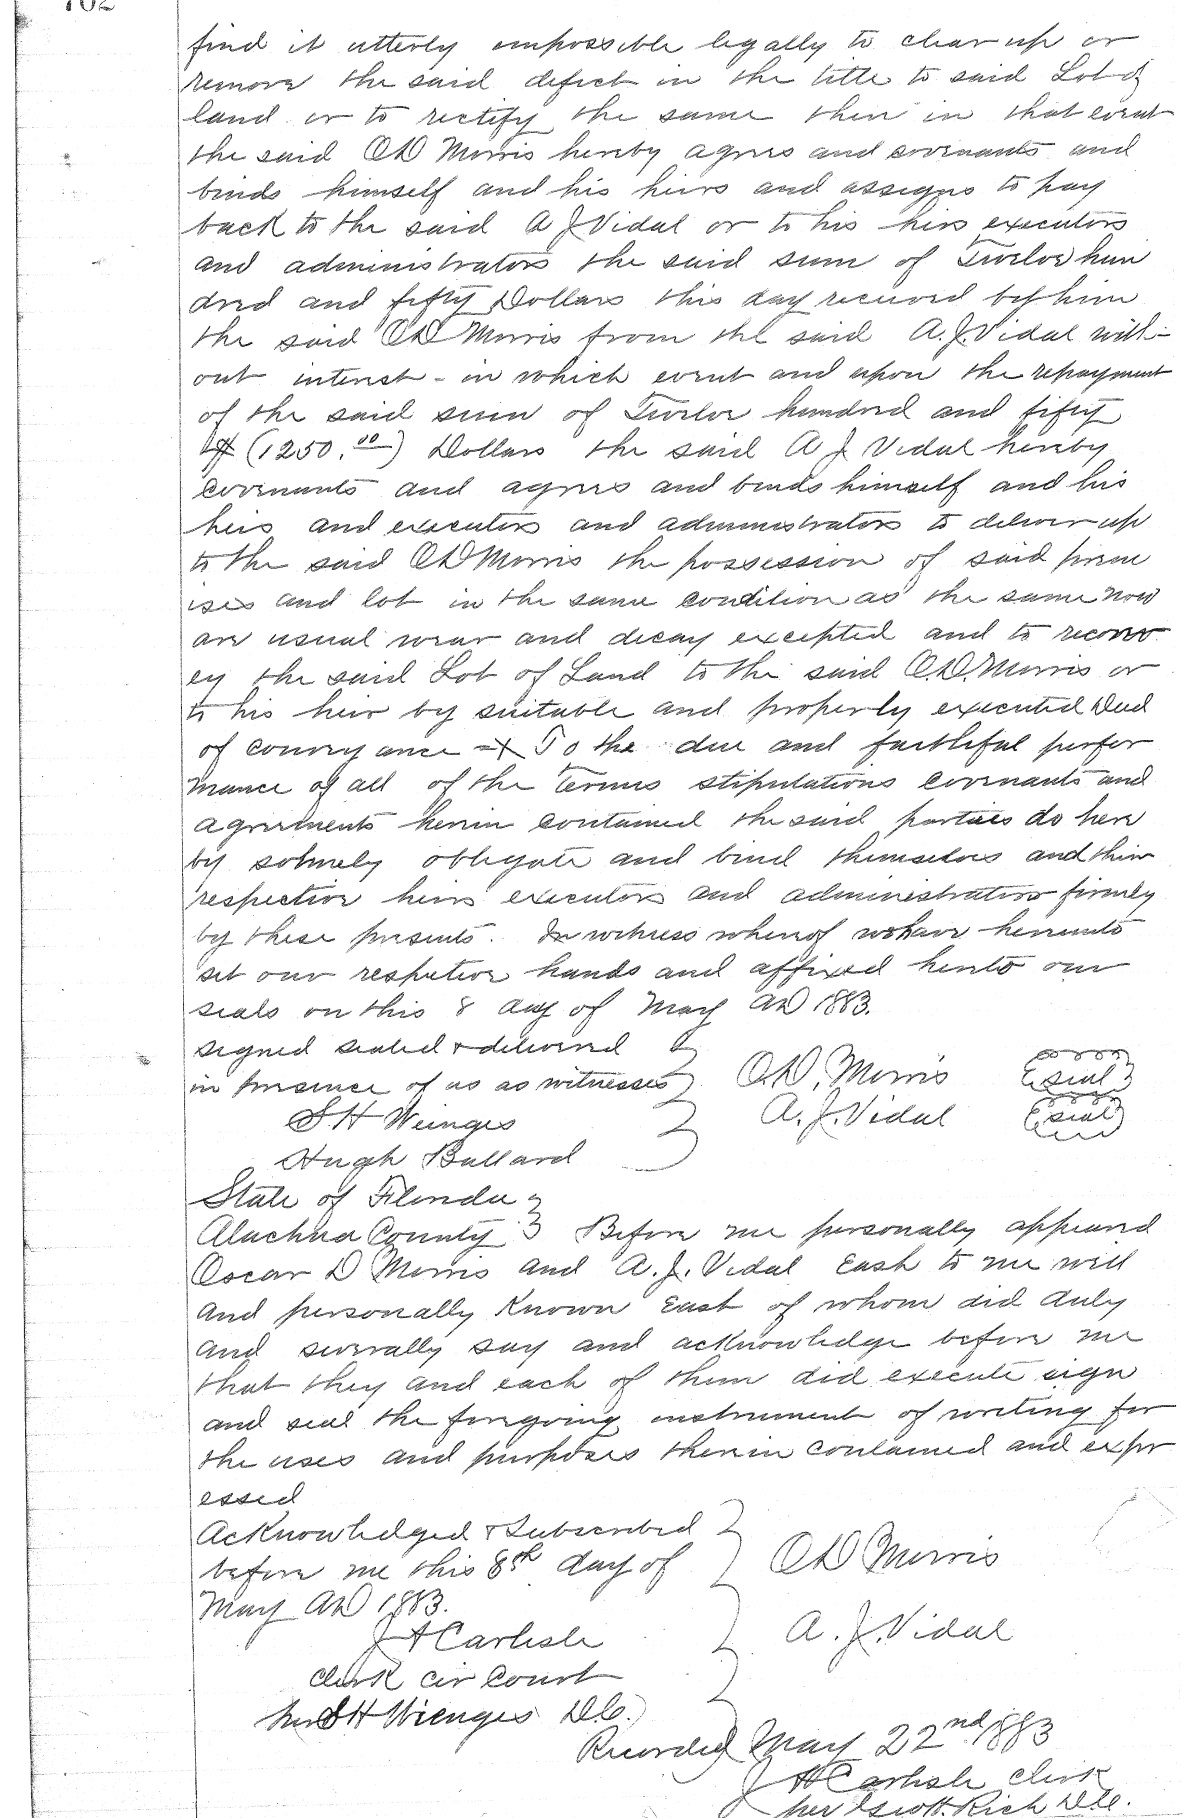 162
find it utterly impossible legally to clear up or
remove the said defect in the title to said Lot of
land or to rectify the same then in that event
the said O D Morris hereby agrees and covenants and
binds himself and his heirs and assigns to pay
back to the said A J Vidal or to his heirs executors
and administrators the said sum of Twelve hun
dred and fifty Dollars this day received by him
the said O D Morris from the said A. J. Vidal with-
out interest - in which event and upon the repayment
of the said sum of Twelve hundred and fifty
(1250.00) Dollars the said A J Vidal hereby
covenants and agrees and binds himself and his
heirs and executors and administrators to deliver up
to the said O D Morris the possession of said prem
ises and lot in the same condition as the same now
are usual wear and decay excepted and to reconv
ey the said Lot of Land to the said O. D. Morris or
to his heir by suitable and properly executed Deed
of conveyance To the due and faithful perfor
mance of all of the terms stipulations covenants and
agreements herein contained the said parties do here
by solmnely obligate and bind themselves and their
respective heirs executors and administrators firmly
by these presents. In witness whereof we have hereunto
set our respective hands and affixed hereto our
seals on this 8 day of May AD 1883.
Signed sealed & delivered
in presence of us as witnesses O. D. Morris seal
S H Weinges A. J. Vidal seal
Hugh Ballard
State of Florida
Alachua County Before me personally appeared
Oscar D Morris and A. J. Vidal Each to me well
and personally known Each of whom did duly
and severally say and acknowledge before me
that they and each of them did execute sign
and seal the foregoing instrument of writing for
the uses and purposes therein contained and expr
essed
Acknowledged & Subscribed
before me this 8th day of O D Morris
May AD 1883.
J A Carlisle A. J. Vidal
Clerk Cir Court
Per S H Wienges D.C.
Recorded May 22nd 1883
J A Carlisle Clerk
per Rich D.C.